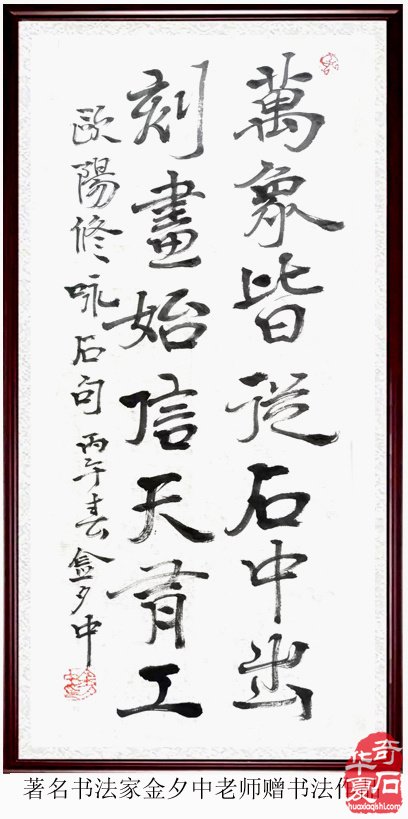 萬象皆從石中出
刻畫始信天有工
歐陽修咏石句 丙午春 金夕中
著名书法家金夕中老师赠书法作
华夏奇石
huaxiaqishi.com